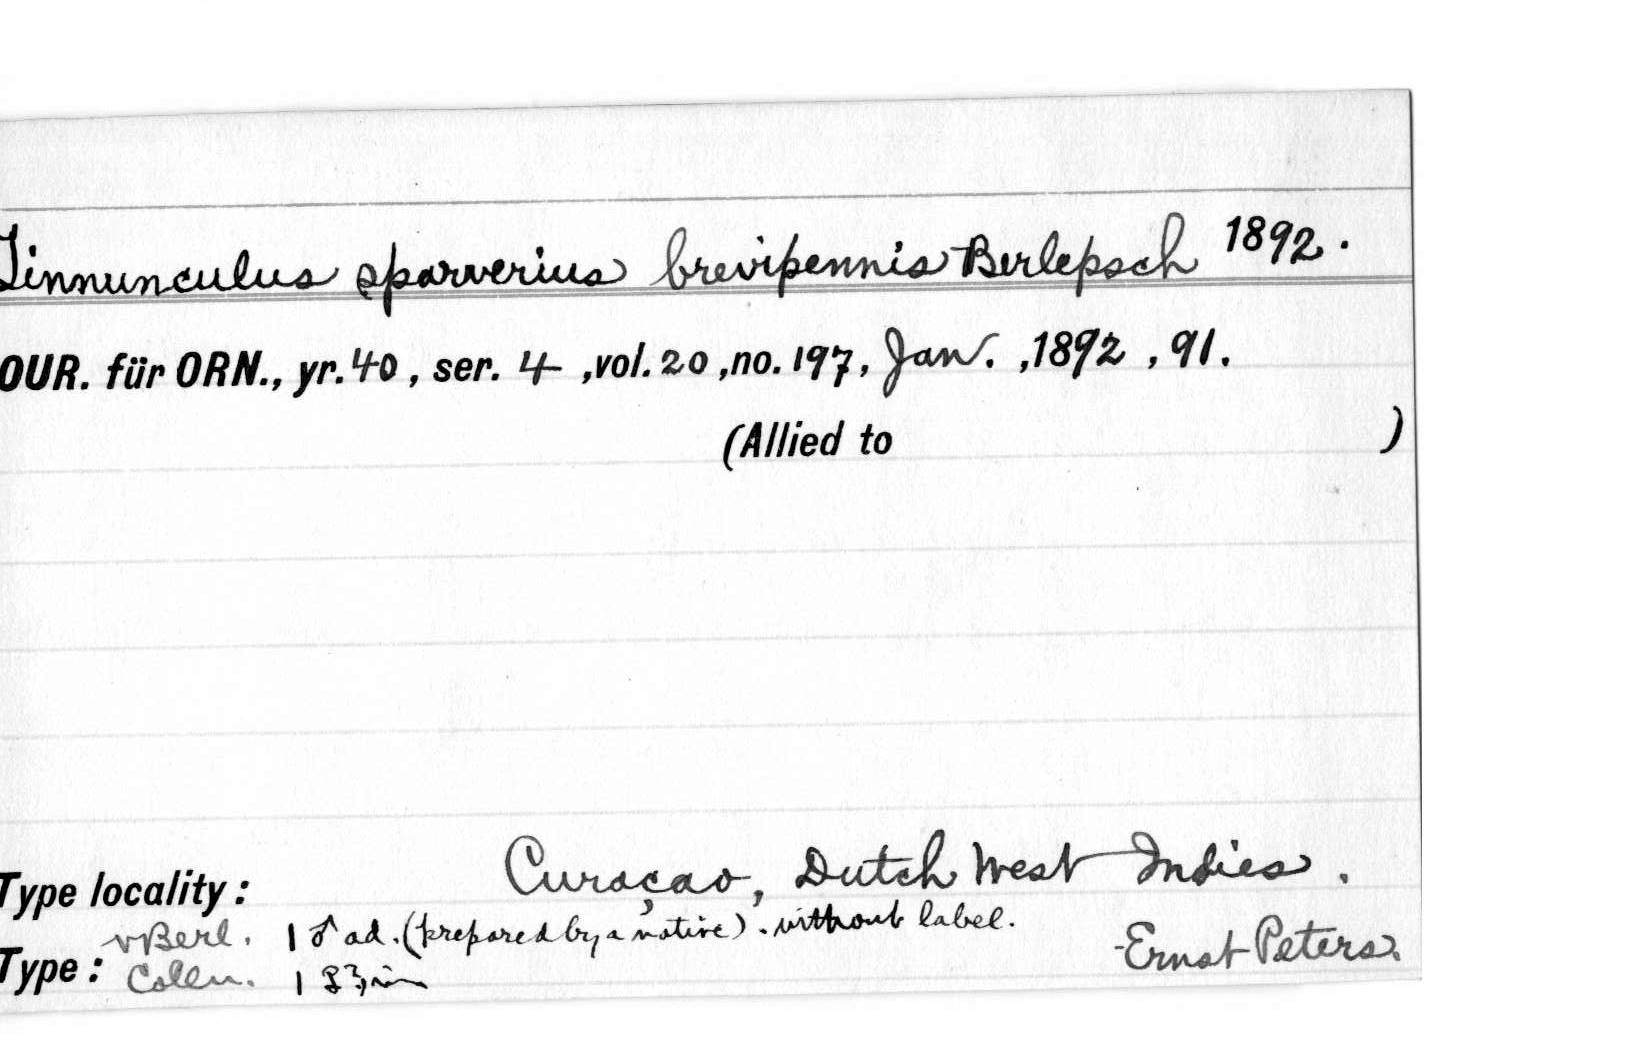 Tinnunculus sparverius brevipennis Berlepsch 1892.
OUR. für ORN., yr. 40, ser. 4, vol. 20, no. 197, Jan., 1892, 91.
(Allied to )
Type locality: Curaçao, Dutch West Indies.
vBerl. 1 ♂ ad. (prepared by a native). without label.
Type: Colln. 1
Ernst Peters.